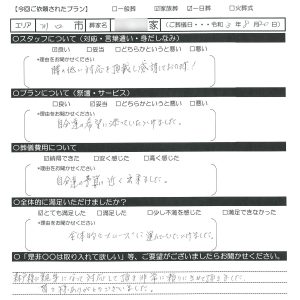 【今回ご依頼されたプラン】 □一般葬 □家族葬 □一日葬 □火葬式
エリア 川口 市 葬家名 家 (ご葬儀日・・令和3年8月
○スタッフについて(対応・言葉遣い・身だしなみ)
□良い □妥当 □どちらかというと悪い □悪い
*理由をお聞かせください
腰の低い対応を頂戴し感謝しております!
○プランについて(祭壇・サービス)
□良い □妥当 □どちらかというと悪い □悪い
*理由をお聞かせください
自分達の希望に添っていただけました。
○葬儀費用について
☑納得できた □安く感じた □高く感じた
*理由をお聞かせください
自分達の予算に近く出来ました。
○全体的に満足いただけましたか?
□とても満足した □満足した □少し不満を感じた □満足できなかった
*理由をお聞かせください
全体的にスムーズに進んでいただけました。
○「是非○○は取り入れて欲しい」等、ご要望がございましたらお聞かせください。
親身になって対応して頂き非常に
ありがとうございました。